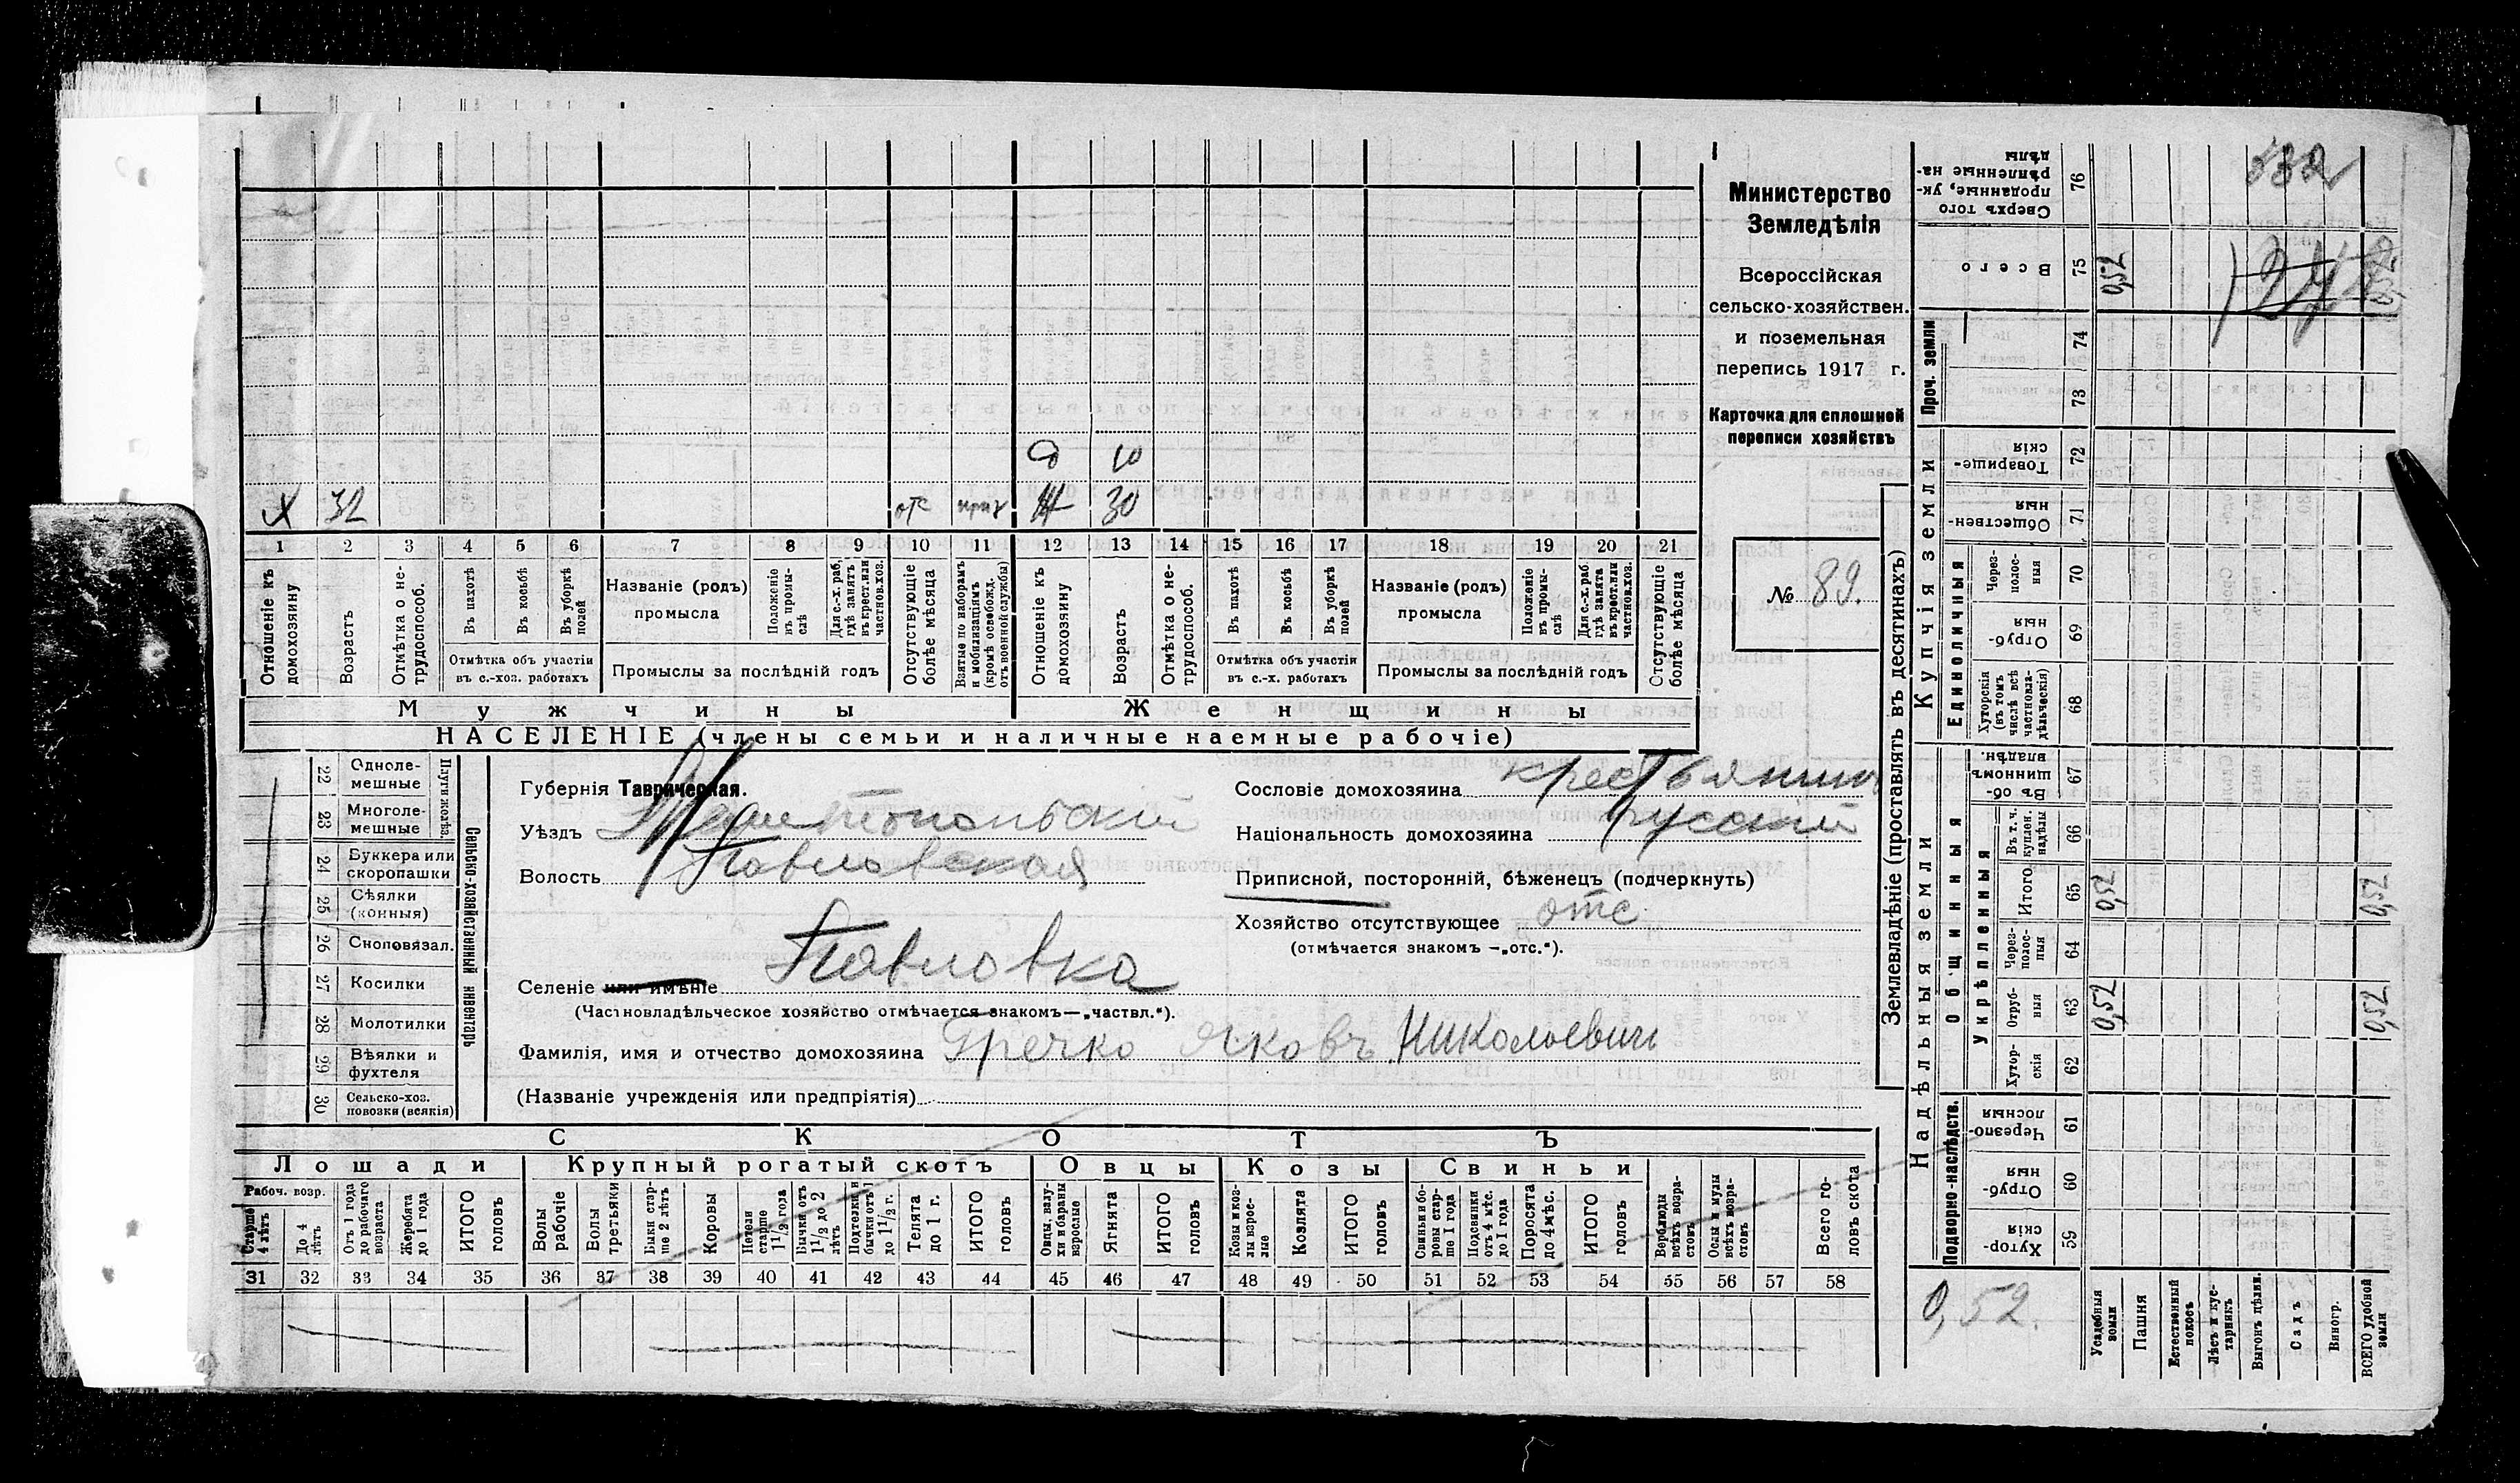 Министерство
Земледѣлія
Всероссійская
сельско-хозяйствен.
и поземельная
перепись 1917 г.
Карточка для сплошной
переписи хозяйствъ
№ 89.
д 10
х 32 отс приз ж 30
1 2 3 4 5 6 7 8 9 10 11 12 13 14 15 16 17 18 19 20 21
Отношеніе къ домохозяину
Возрастъ
Отмѣтка о нетрудоспособ.
Въ пахотѣ
Въ косьбѣ
Въ уборкѣ полей
Отмѣтка объ участіи
въ с.-хоз. работахъ
Названіе (родъ)
промысла
Положеніе въ промыслѣ
Для с.-х. раб. гдѣ занятъ въ крест. или частнов. хоз.
Промыслы за послѣдній годъ
Отсутствующіе болѣе мѣсяца
Взятые по наборамъ и мобилизаціямъ (кромѣ освобожд. отъ военной службы)
Отношеніе къ домохозяину
Возрастъ
Отмѣтка о нетрудоспособ.
Въ пахотѣ
Въ косьбѣ
Въ уборкѣ полей
Отмѣтка объ участіи
въ с.-х. работахъ
Названіе (родъ)
промысла
Положеніе въ промыслѣ
Для с.-х. раб. гдѣ занята въ крест. или частнов. хоз.
Промыслы за послѣдній годъ
Отсутствующіе болѣе мѣсяца
Мужчины Женщины
НАСЕЛЕНІЕ (члены семьи и наличные наемные рабочіе)
22 Однолемешные
23 Многолемешные
24 Буккера или скоропашки
25 Сѣялки (конныя)
26 Сноповязал.
27 Косилки
28 Молотилки
29 Вѣялки и фухтеля
30 Сельско-хоз. повозки (всякія)
Сельско-хозяйственный инвентарь
Губернія Таврическая.
Уѣздъ Мелитопольскій
Волость Павловская
Селеніе или имѣніе Павловка
(Частновладѣльческое хозяйство отмѣчается знакомъ—„частвл.“).
Фамилія, имя и отчество домохозяина Гречко Яковъ Николаевич
(Названіе учрежденія или предпріятія)
Сословіе домохозяина крестьянин
Національность домохозяина русскій
Приписной, посторонній, бѣженецъ (подчеркнуть)
Хозяйство отсутствующее отс
(отмѣчается знакомъ —„отс.“).
СКОТЪ
Лошади Крупный рогатый скотъ Овцы Козы Свиньи
Рабоч. возр.
Старше 4 лѣтъ
До 4 лѣтъ
Отъ 1 года до рабочаго возраста
Жеребята до 1 года
ИТОГО головъ
Волы рабочіе
Волы третьяки
Быки старше 2 лѣтъ
Коровы
Нетели старше 1 1/2 года
Бычки отъ 1 1/2 до 2 лѣтъ
Подтелки и бычки отъ 1 до 1 1/2 г.
Телята до 1 г.
ИТОГО головъ
Овцы, валухи и бараны взрослые
Ягнята
ИТОГО головъ
Козы и козлы взрослые
Козлята
ИТОГО головъ
Свиньи боровы старше 1 года
Подсвинки отъ 4 мѣс. до 1 года
Поросята до 4 мѣс.
ИТОГО головъ
Верблюды всѣхъ возрастовъ
Ослы и мулы всѣхъ возрастовъ
Всего головъ скота
31 32 33 34 35 36 37 38 39 40 41 42 43 44 45 46 47 48 49 50 51 52 53 54 55 56 57 58
Землевладѣніе (проставлять въ десятинахъ)
Надѣльныя земли
Купчія земли
Проч. земли
Подворно-наслѣдств.
Общинныя
Укрѣпленныя
Единоличныя
Сверхъ того проданные, укрѣпленные надѣлы 76
Всего 75 0,52
74
73
Товарищескія 72
Общественныя 71
Черезполосныя 70
Отрубныя 69
Хуторскія (въ томъ числѣ всѣ частновладѣльческія) 68
Въ общинномъ владѣн. 67
Въ т. ч. куплен. надѣлы 66
Итого 65 0,52 0,52
Черезполосныя 64
Отрубныя 63 0,52 0,52
Хуторскія 62
Черезполосныя 61
Отрубныя 60
Хуторскія 59
0,52.
Усадебныя земли
Пашня
Естественный покосъ
Лѣсъ и кустарникъ
Выгонъ цѣлин.
Садъ
Виногр.
ВСЕГО удобной земли
532